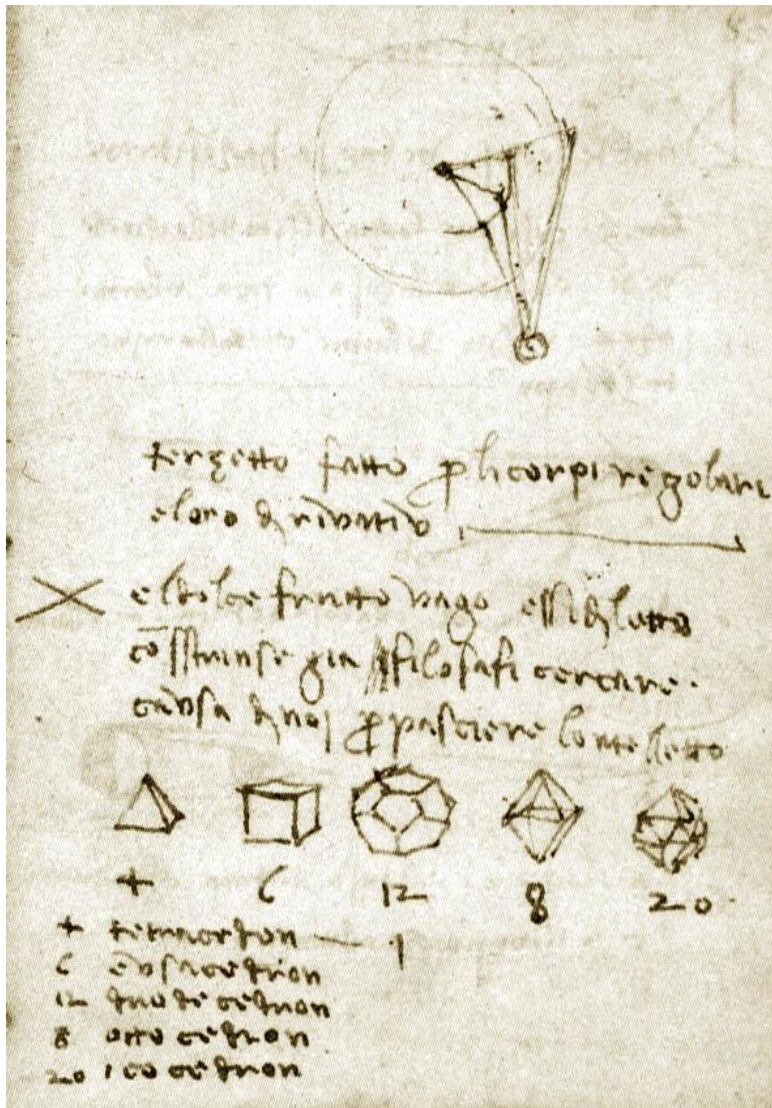 terzetto fatto ꝑ li corpi regolari
e loro dirivativi
el dolce frutto vago essi diletto
cōstrinse gia filosafi cercare.
causa di noi ꝑ pasciere lontelletto
4 6 12 8 20
4 tetracedron — 1
6 eusacedron
12 duodecedron
8 ottocedron
20 icocedron